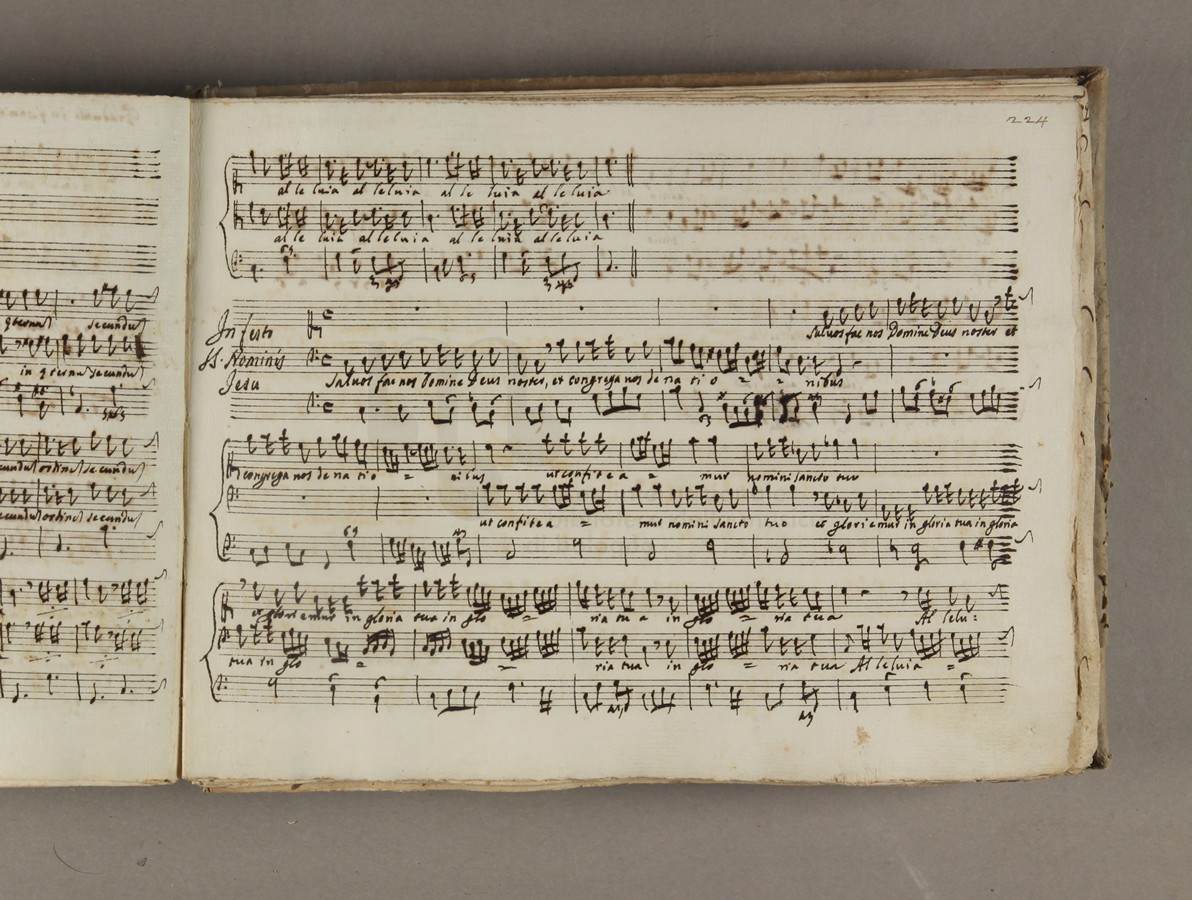 224
al le luia al leluia al le luia al leluia
al le luia al leluia al le luia al leluia
In festo
SS. Nominis
Jesu
Salvos fac nos Domine Deus noster et
Salvos fac nos Domine Deus noster, et congrega nos de na ti o = = nibus
congrega nos de na tio = nibus ut confitea = mur nomini sancto tuo
ut confitea = mur nomini sancto tuo et gloriemur in gloria tua in gloria
et gloriemur in gloria tua in glo = ria tua in glo = ria tua Al lelu:
tua in glo = = ria tua in glo = ria tua Al leluia =
æternas secundus
in æternas secundus
secundus ordines secundus
secundus ordines secundus